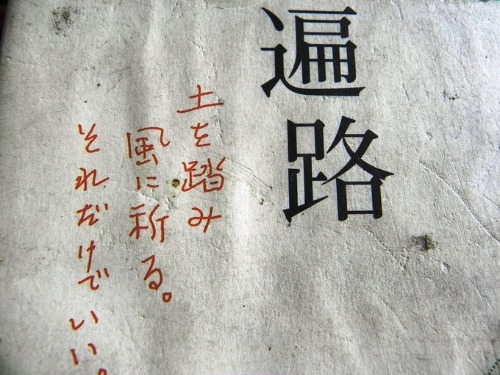 遍路
土を踏み
風に祈る。
それだけでいい。